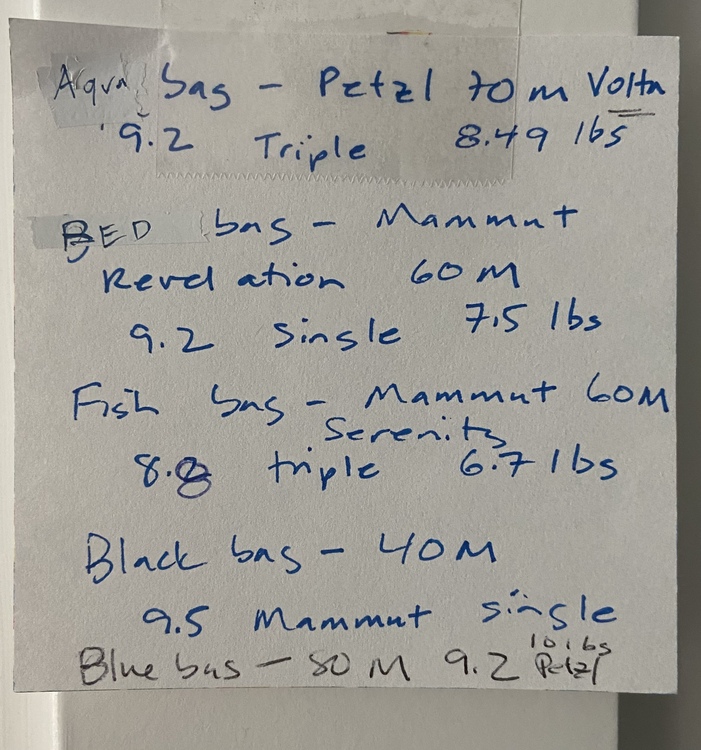 Aqua bag - Petzl 70 m Volta
9.2 Triple 8.49 lbs
BED bag - Mammut
Revelation 60 M
9.2 Single 7.5 lbs
Fish bag - Mammut 60M
Serenity
8.8 triple 6.7 lbs
Black bag - 40 M
9.5 Mammut single
Blue bag - 80 M 9.2 Petzl
10 lbs